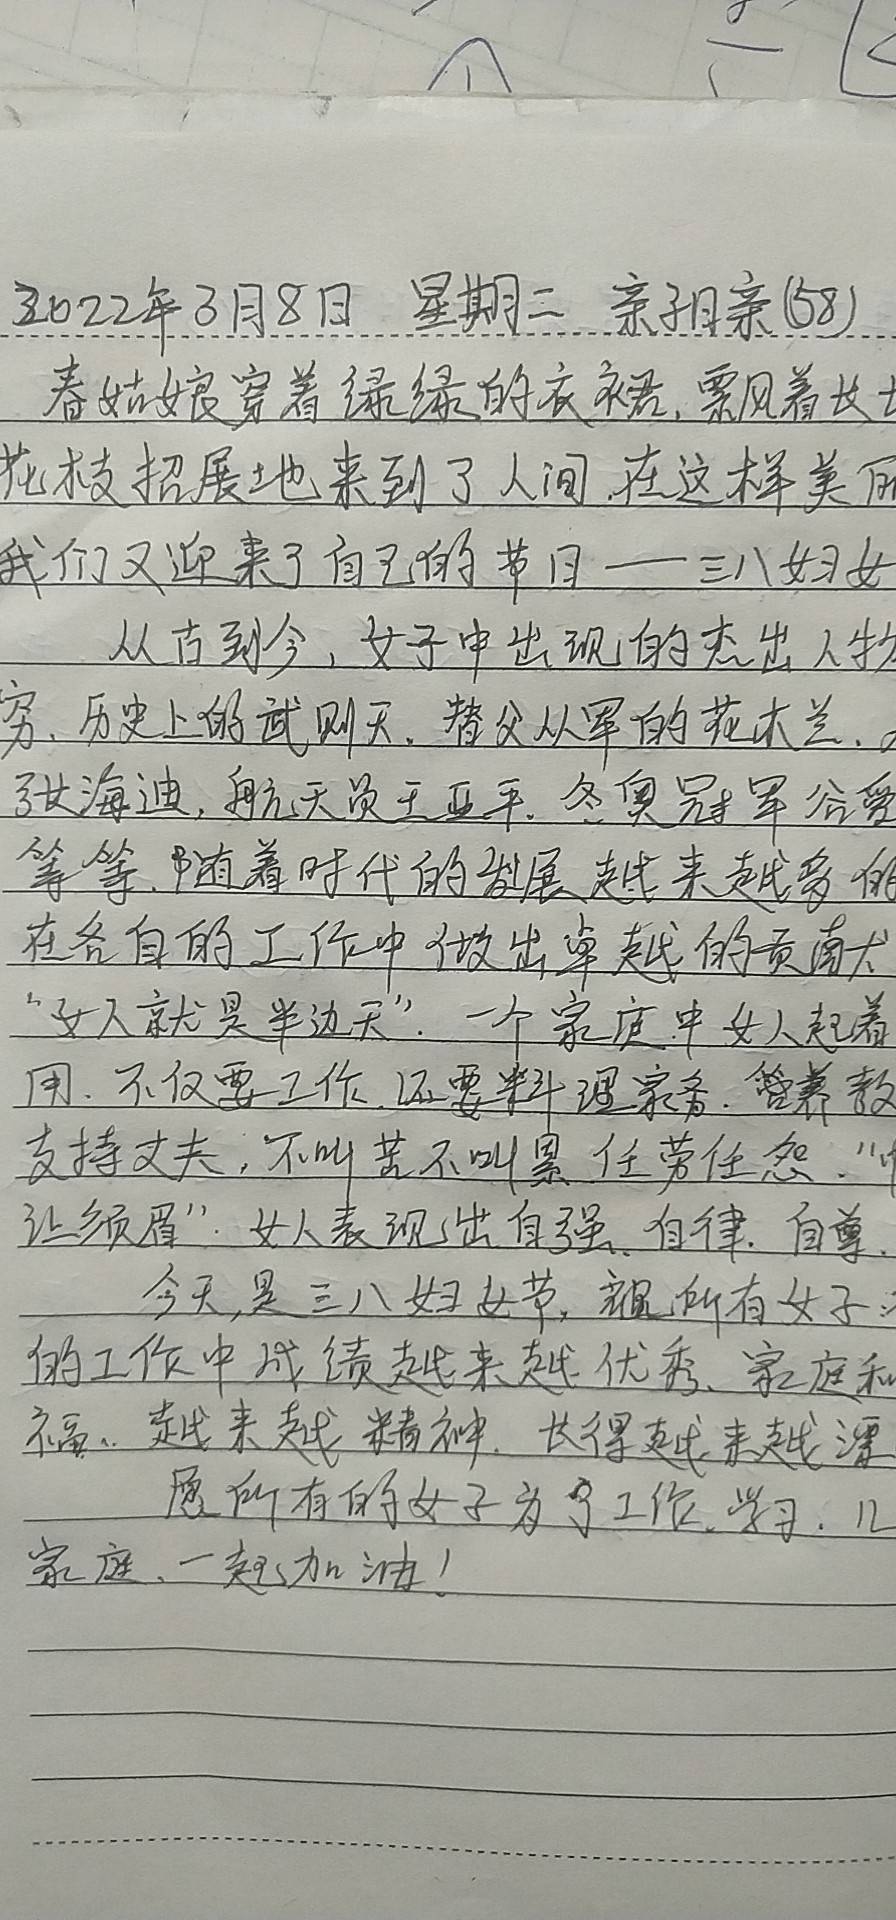 2022年3月8日 星期二 亲子日亲(58)
春姑娘穿着绿绿的衣裙,飘着长
花枝招展地来到了人间,在这样美丽
我们又迎来了自己的节日——三八妇女
从古到今,女子中出现的杰出人物
穷、历史上的武则天、替父从军的花木兰、
张海迪,航天员王亚平、冬奥冠军谷爱
等等、随着时代的发展越来越多的
在各自的工作中做出卓越的贡献
“女人就是半边天”. 一个家庭中女人起着
用、不仅要工作、还要料理家务、营养教
支持丈夫,不叫苦不叫累 任劳任怨.“巾
让须眉”. 女人表现出自强、自律、自尊、
今天,是三八妇女节,祝所有女子
的工作中成绩越来越优秀、家庭和
福、越来越精神、长得越来越漂
愿所有的女子为了工作、学习、儿
家庭、一起加油!